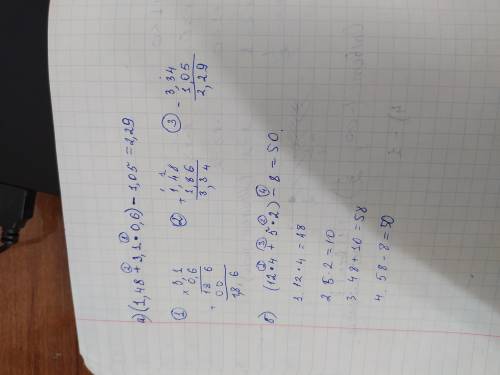 а) (1,48 + 3,1 • 0,6) - 1,05 = 2,29
① × 3,1
0,6
18 6
+ 00
1,8,6
② + 1,48
1,86
3,34
③ - 3,34
1,05
2,29
б) (12 • 4 + 5 • 2) - 8 = 50.
1. 12 • 4 = 48
2. 5 • 2 = 10
3. 48 + 10 = 58
4. 58 - 8 = 50